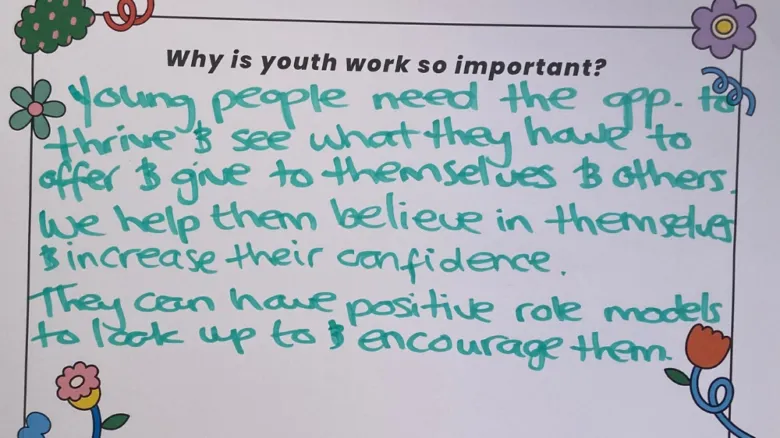 Why is youth work so important?
Young people need the opp. to
thrive & see what they have to
offer & give to themselves & others.
We help them believe in themselves
& increase their confidence.
They can have positive role models
to look up to & encourage them.